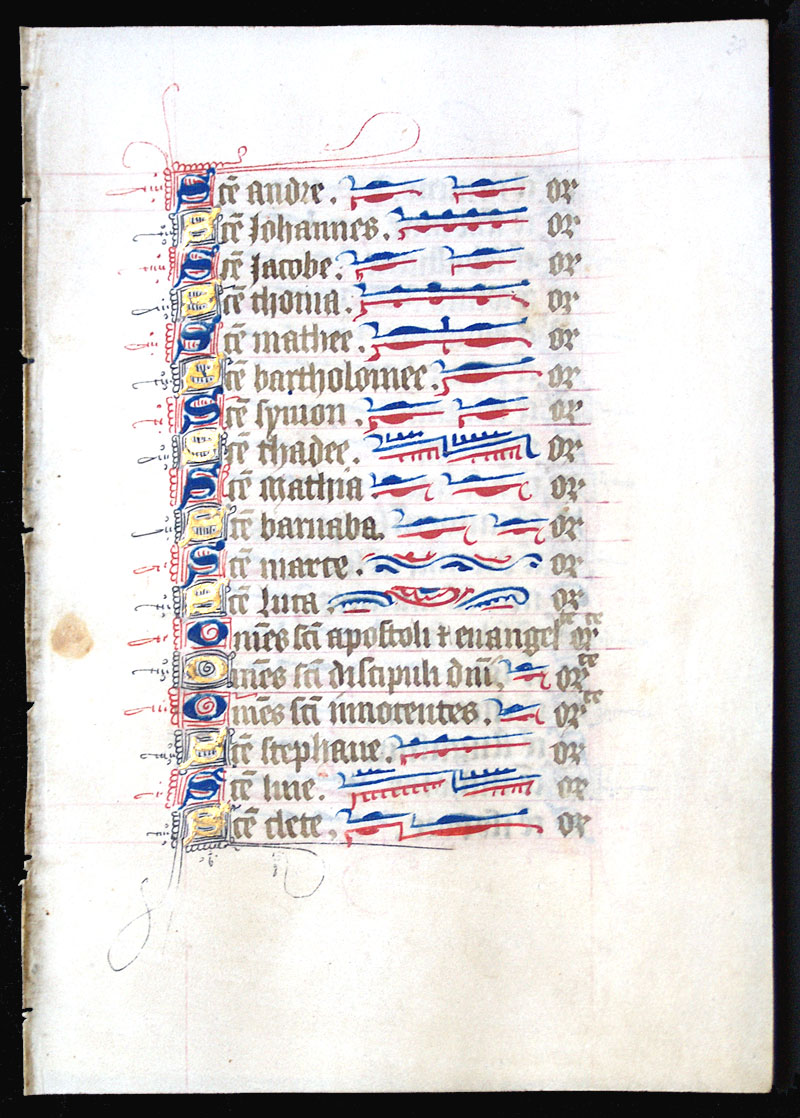 Scē andre. or
Scē Johannes. or
Scē Jacobe. or
Scē thoma. or
Scē mathee. or
Scē bartholomee. or
Scē symon. or
Scē thadee. or
Scē mathia. or
Scē barnaba. or
Scē marce. or
Scē luca. or
Omēs scī apostoli ⁊ euangel orte
Omēs scī discipuli dnī. orte
Omēs scī innocentes. orte
Scē stephane. or
Scē line. or
Scē clete. or